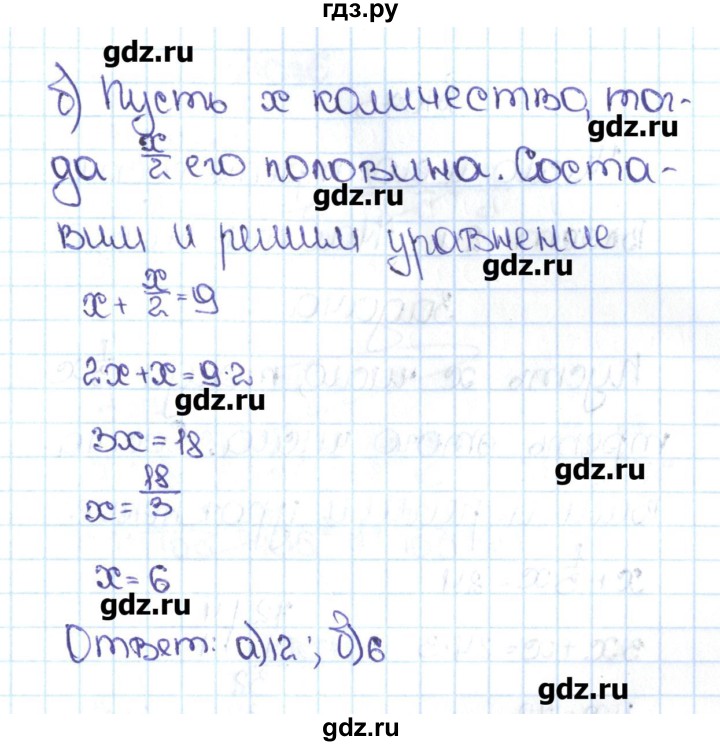 гдз.ру
gdz.ru
б) Пусть x количество, тог-
gdz.ru
да x/2 его половина. Соста-
gdz.ru
вим и решим уравнение
gdz.ru
x + x/2 = 9
2x+x=9·2
gdz.ru
3x=18
gdz.ru
x= 18/3
x=6
gdz.ru
Ответ: а)12; б)6
gdz.ru
gdz.ru